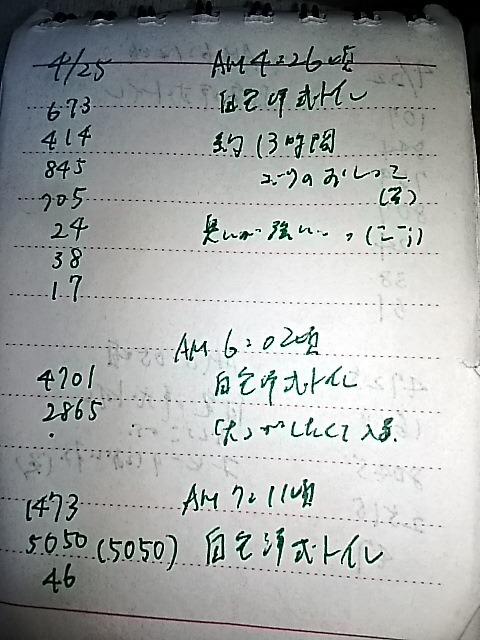 4/25 AM 4:26頃
673 自宅洋式トイレ
414 約13時間
845
705
24 臭いが強い
38
17
AM 6:02頃
4701 自宅洋式トイレ
2865 (大)がしたくて
AM 7:11頃
1473
5050 (5050) 自宅洋式トイレ
46